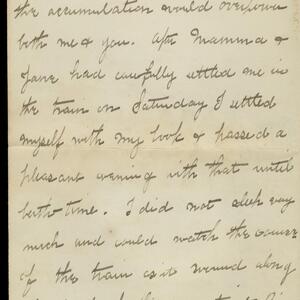 the accumulation would overpower
both me & you. After Mamma &
Jane had carefully settled me in
the train on Saturday I settled
myself with my book & passed a
pleasant evening with that until
berth-time. I did not sleep very
much and could watch the course
of the train as it wound along